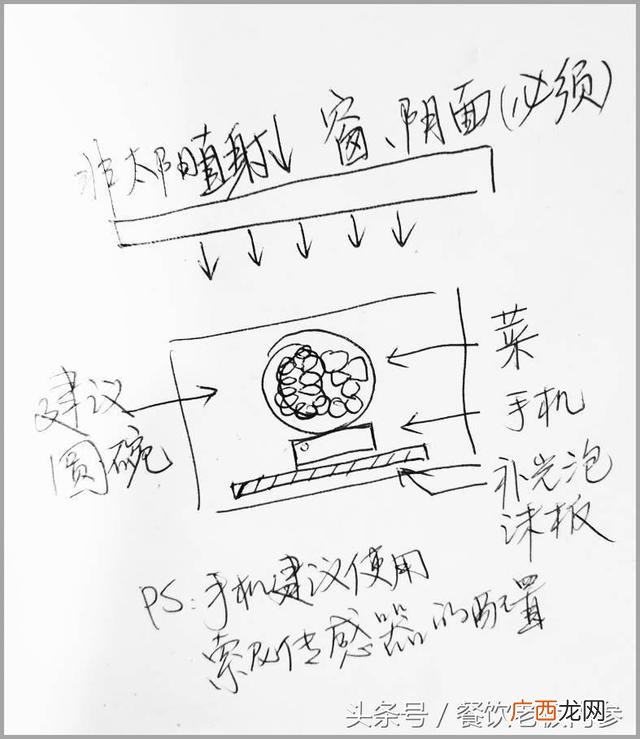 非太阳直射 窗、阴面(必须)
菜
手机
建议
圆碗
补光泡
沫板
PS:手机建议使用
索尼传感器的配置
头条号 / 餐饮老板内参
广西龙网